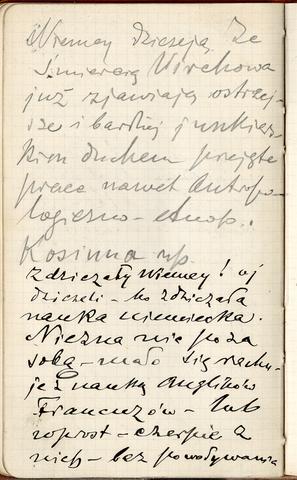 Niemcy dziczeją. Ze
śmiercią Virchowa
już zjawiają ostrzej-
sze i bardziej junkier-
skim duchem przejęte
prace nawet antropo-
logiczno - etnogr.
Kosinna np.
zdziczały Niemcy! oj
dziczeli - bo zdziczała
nauka niemiecka.
Nie zna nic poza
sobą - mało się rachu-
je z nauką Anglików
Francuzów - lub
wprost - czerpie z
nich - bez powoływania